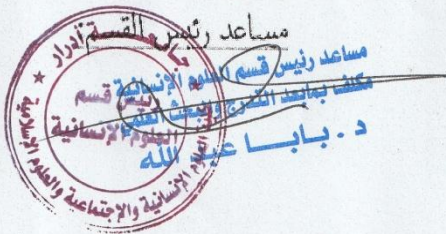 مساعد رئيس القسم
مساعد رئيس قسم العلوم الإنسانية
مكلف بمابعد التدرج والبحث العلمي
د . بابا عبد الله
أدرار
رئيس قسم
العلوم الإنسانية
الإنسانية والإجتماعية والعلوم الإسلامية